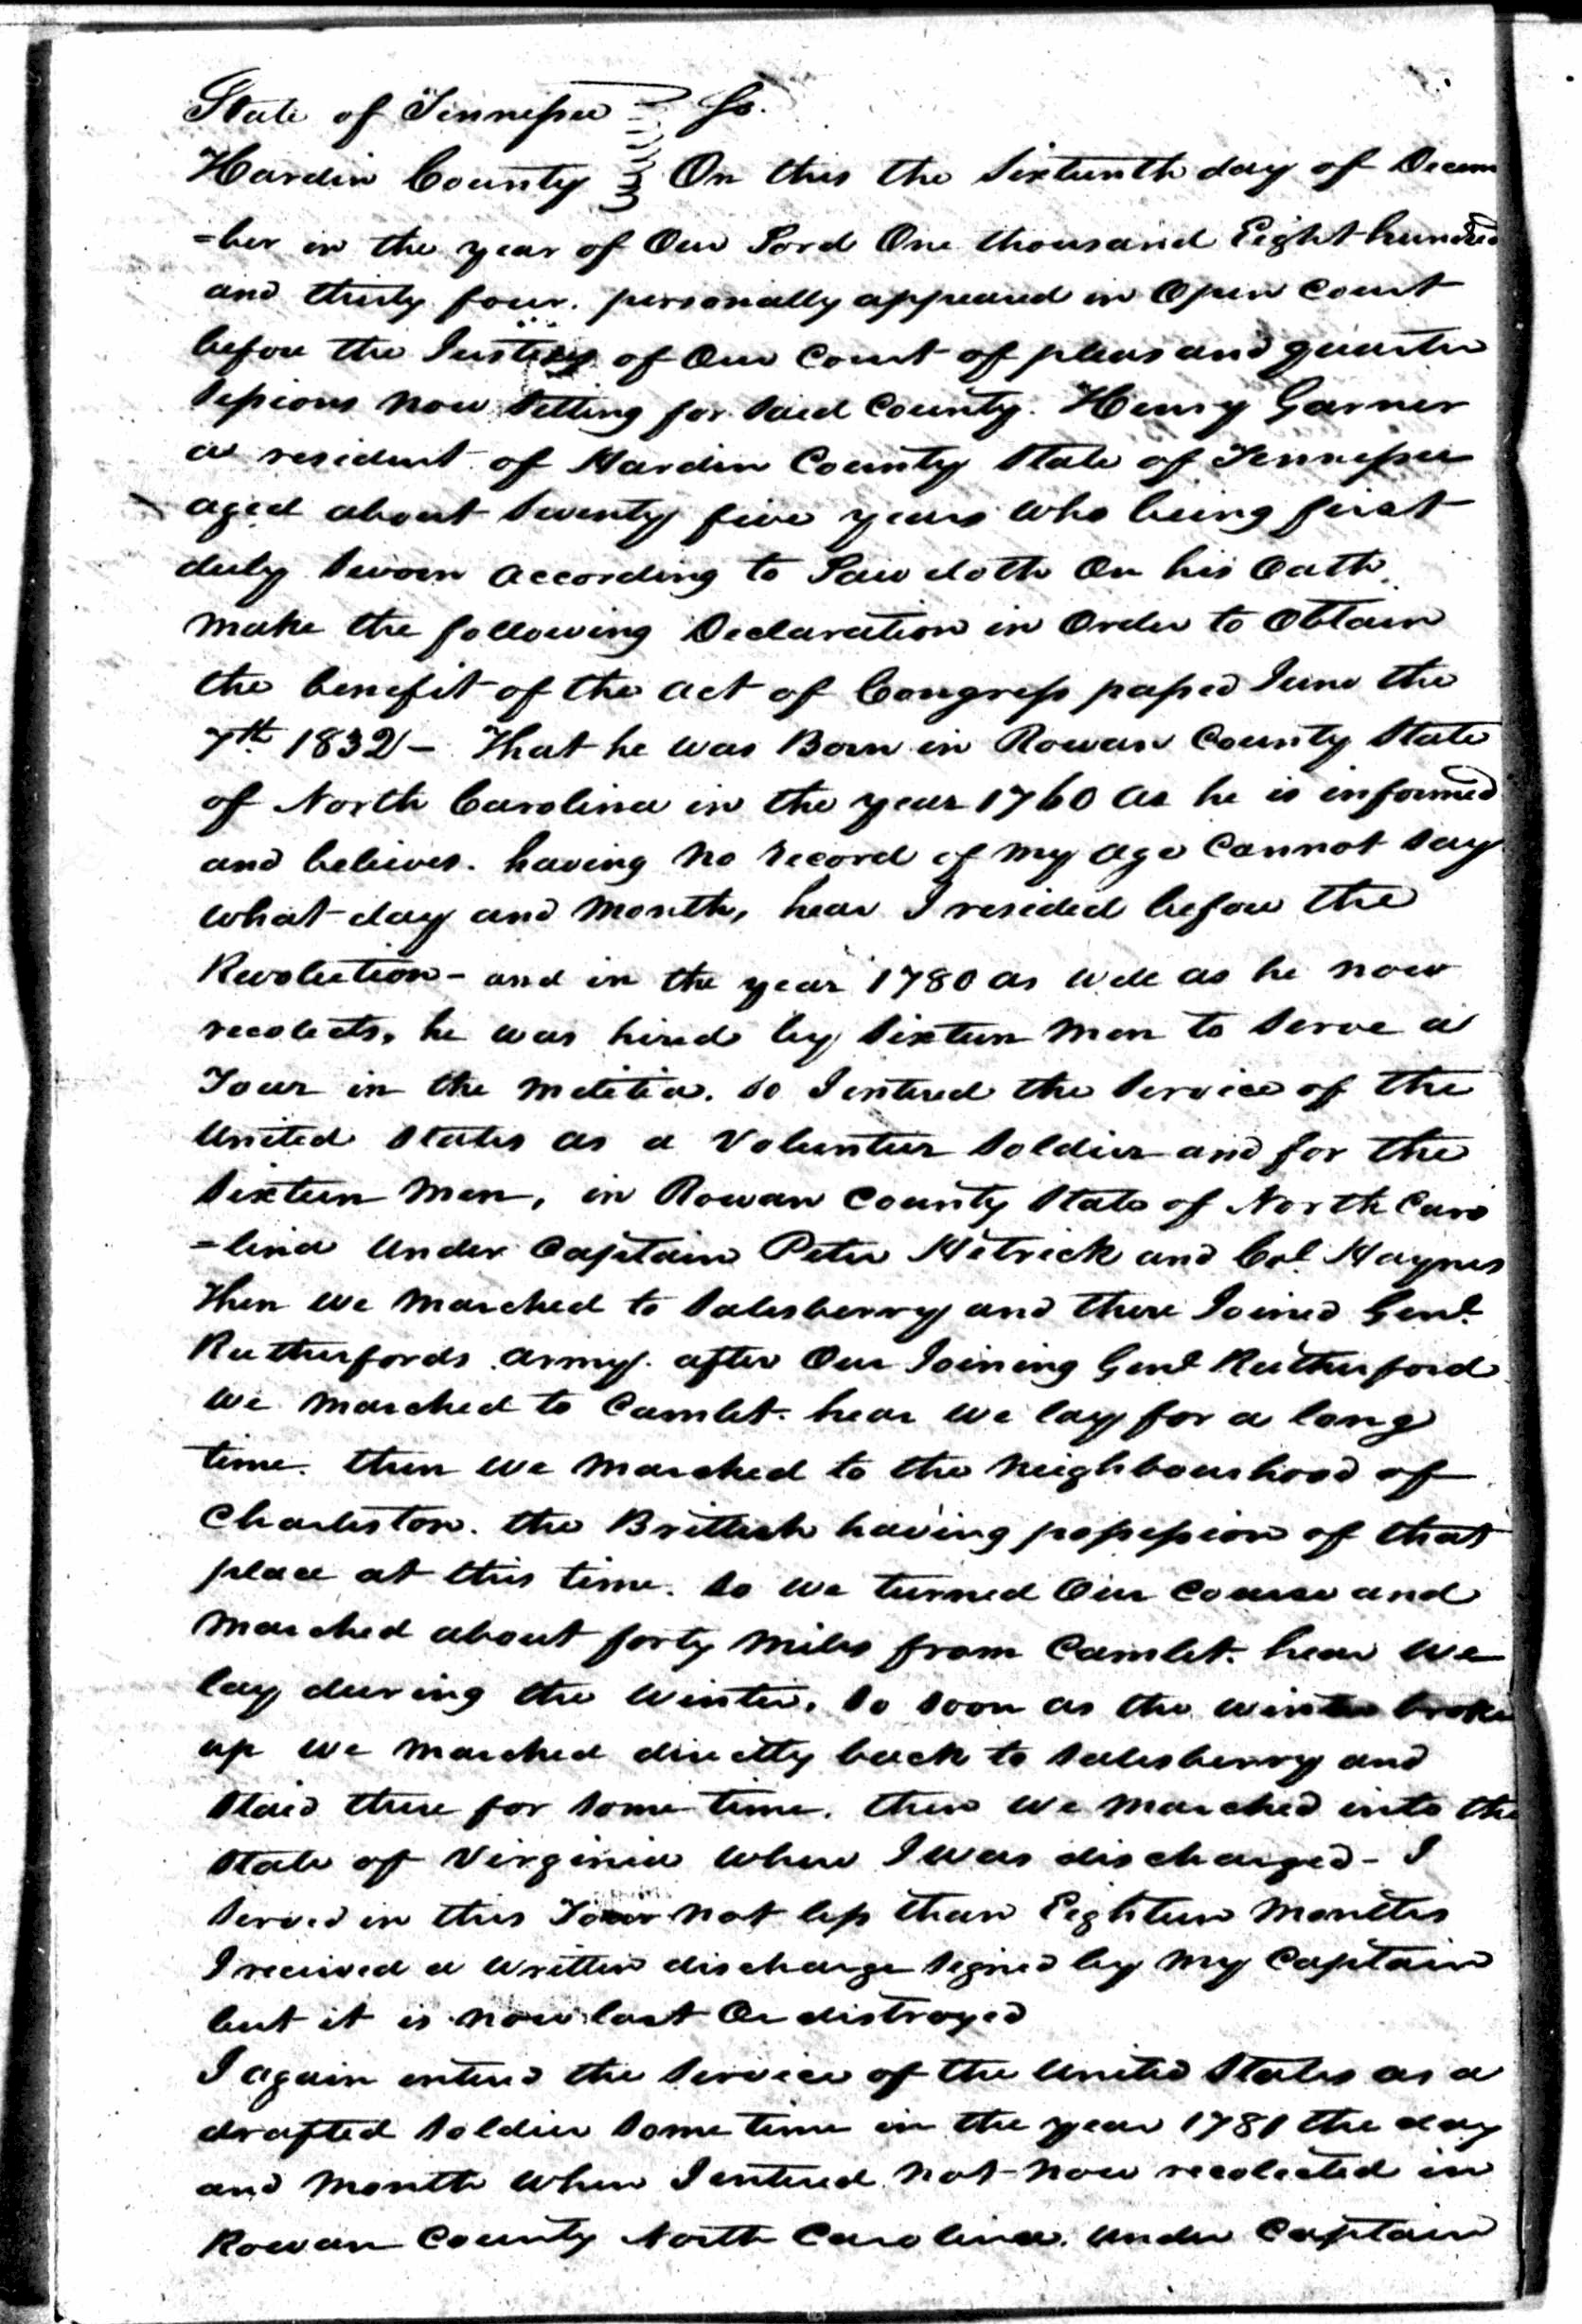 State of Tennessee } Ss.
Hardin County } On this the Sixteenth day of Decem
=ber in the year of Our Lord One thousand Eight hundred
and thirty four. personally appeared in Open Court
before the Justices of Our Court of pleas and quarter
Sessions now Sitting for Said County. Henry Garner
a resident of Hardin County State of Tennessee
aged about Seventy five years who being first
duly Sworn according to Law doth On his Oath
make the following Declaration in Order to Obtain
the benefit of the act of Congress passed June the
7th 1832 - That he was Born in Rowan County State
of North Carolina in the year 1760 as he is informed
and believes. having no record of my age Cannot Say
what day and month, hear I resided before the
Revolution - and in the year 1780 as well as he now
recolects, he was hired by Sixteen men to Serve a
Tour in the metitia. So I entered the Service of the
United States as a Voluntier Soldier and for the
Sixteen men, in Rowan County State of North Caro
=lina Under Captain Peter Hetrick and Col Haynes
Then we marched to Salesberry and there Joined Genl
Rutherfords army. after Our Joining Genl Rutherford
we marched to Camlet. hear we lay for a long
time. then we marched to the neighbourhood of
Charleston. the Brittish having possession of that
place at this time. So we turned Our Course and
marched about forty miles from Camlet. hear we
lay during the Winter. So Soon as the winter broke
up we marched directly back to Salesberry and
Staid there for Some time. then we marched into the
State of Virginia where I was discharged - I
Served in this Tour not less than Eighteen months
I received a written discharge Signed by my Captain
but it is now lost Or distroyed
I again entered the Service of the United States as a
drafted Soldier Some time in the year 1781 the day
and month when I entered not now recolected in
Rowan County North Carolina. Under Captain